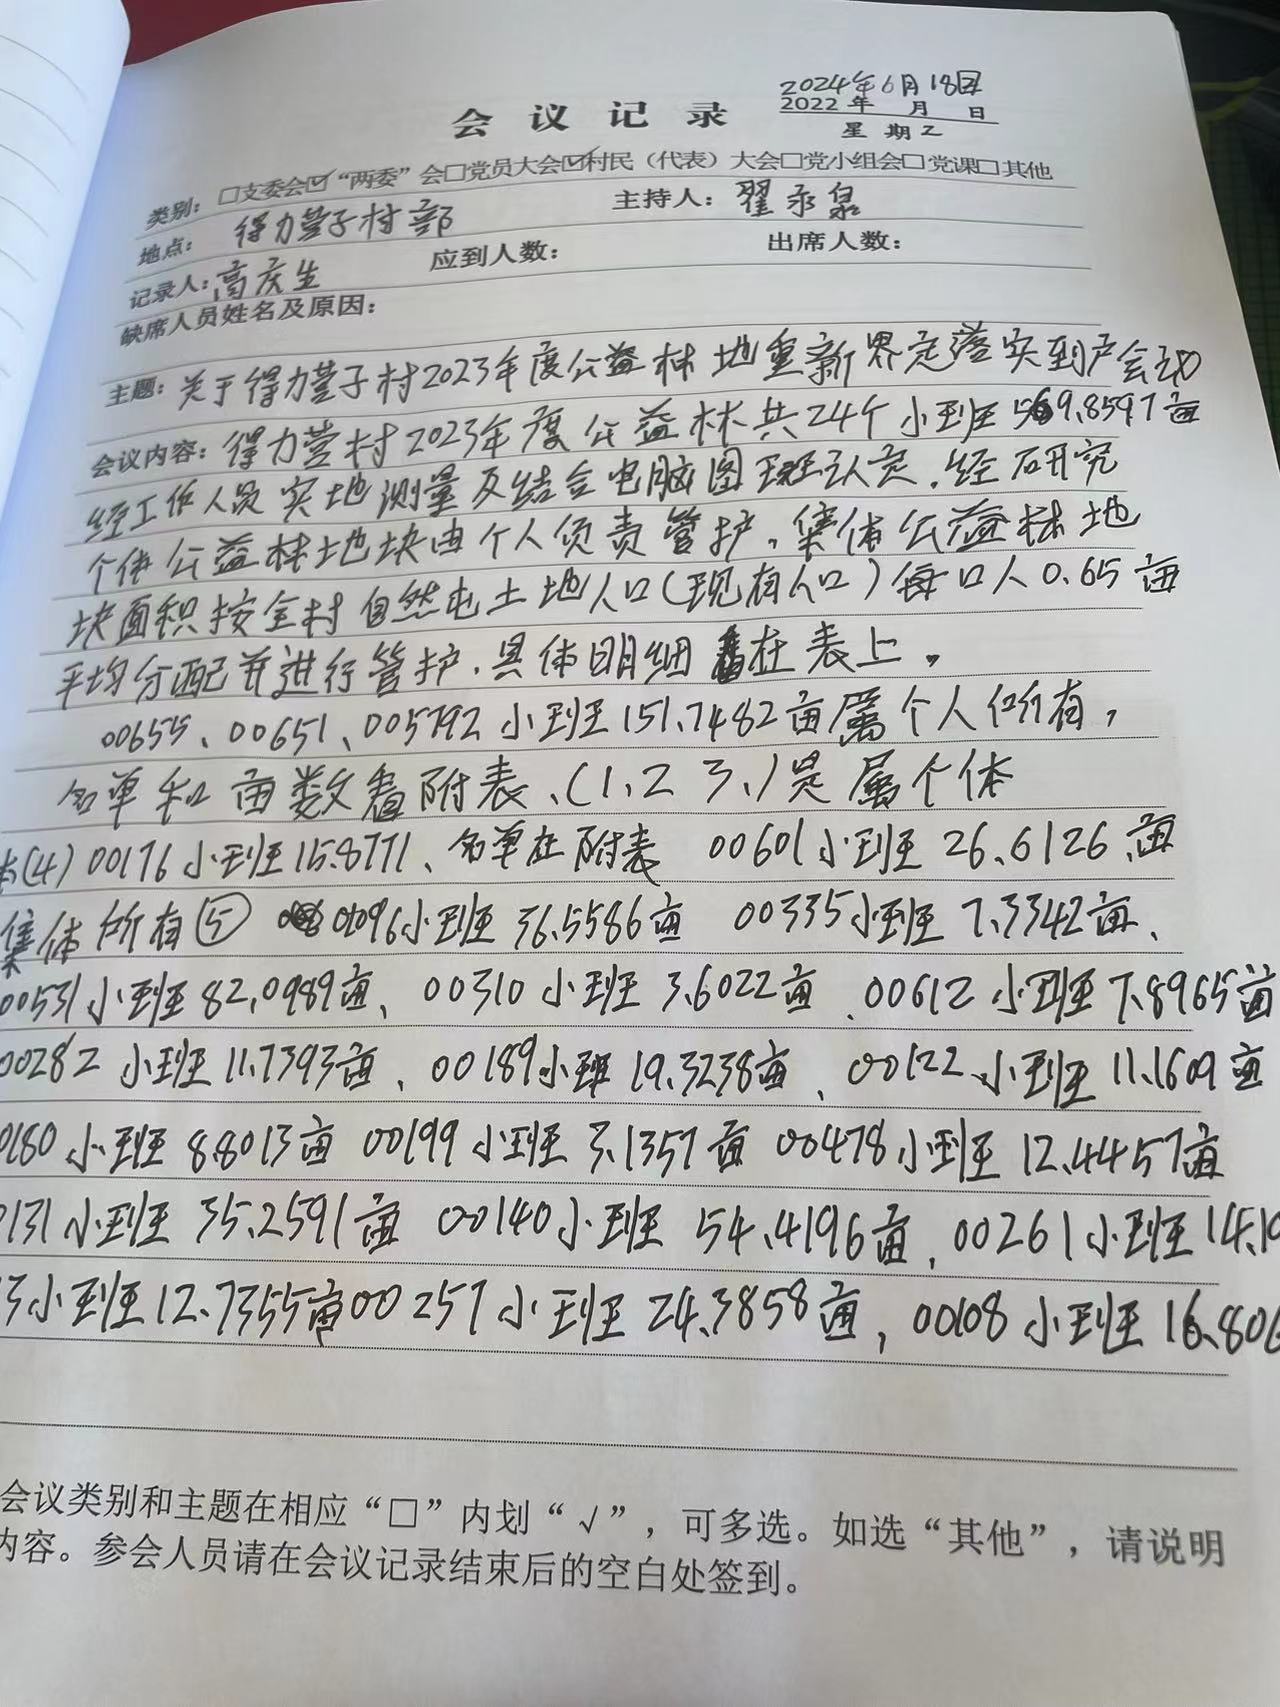 2024年6月18日
会议记录
2022 年 月 日
星期 2
类别：□支委会☑“两委”会□党员大会☑村民（代表）大会□党小组会□党课□其他
地点：得力营子村部 主持人：翟永泉
记录人：高庆生 应到人数： 出席人数：
缺席人员姓名及原因：
主题：关于得力营子村2023年度公益林地重新界定落实到户会议
会议内容：得力营村2023年度公益林共24个小班569.8597亩
经工作人员实地测量及结合电脑图斑认定，经研究
个体公益林地块由个人负责管护，集体公益林地
块面积按全村自然屯土地人口(现有人口)每口人0.65亩
平均分配并进行管护.具体明细在表上。
00655、00651、005792小班151.7482亩属个人所有，
名单和亩数看附表、(1、2 3、)是属个体
(4)00176小班15.8771、名单在附表 00601小班26.6126亩
集体所有⑤ 01096小班36.5586亩 00335小班7.3342亩、
00531小班82.0989亩、00310小班3.6022亩、00612小班7.8965亩
00282小班11.7393亩、00189小班19.3238亩、00122小班11.1609亩
0180小班8.8013亩 00199小班3.1357亩 00478小班12.4457亩
0131小班35.2591亩 00140小班54.4196亩，00261小班14.1
3小班12.7355亩00257小班24.3858亩，00108小班16.806
会议类别和主题在相应“□”内划“√”，可多选。如选“其他”，请说明
内容。参会人员请在会议记录结束后的空白处签到。